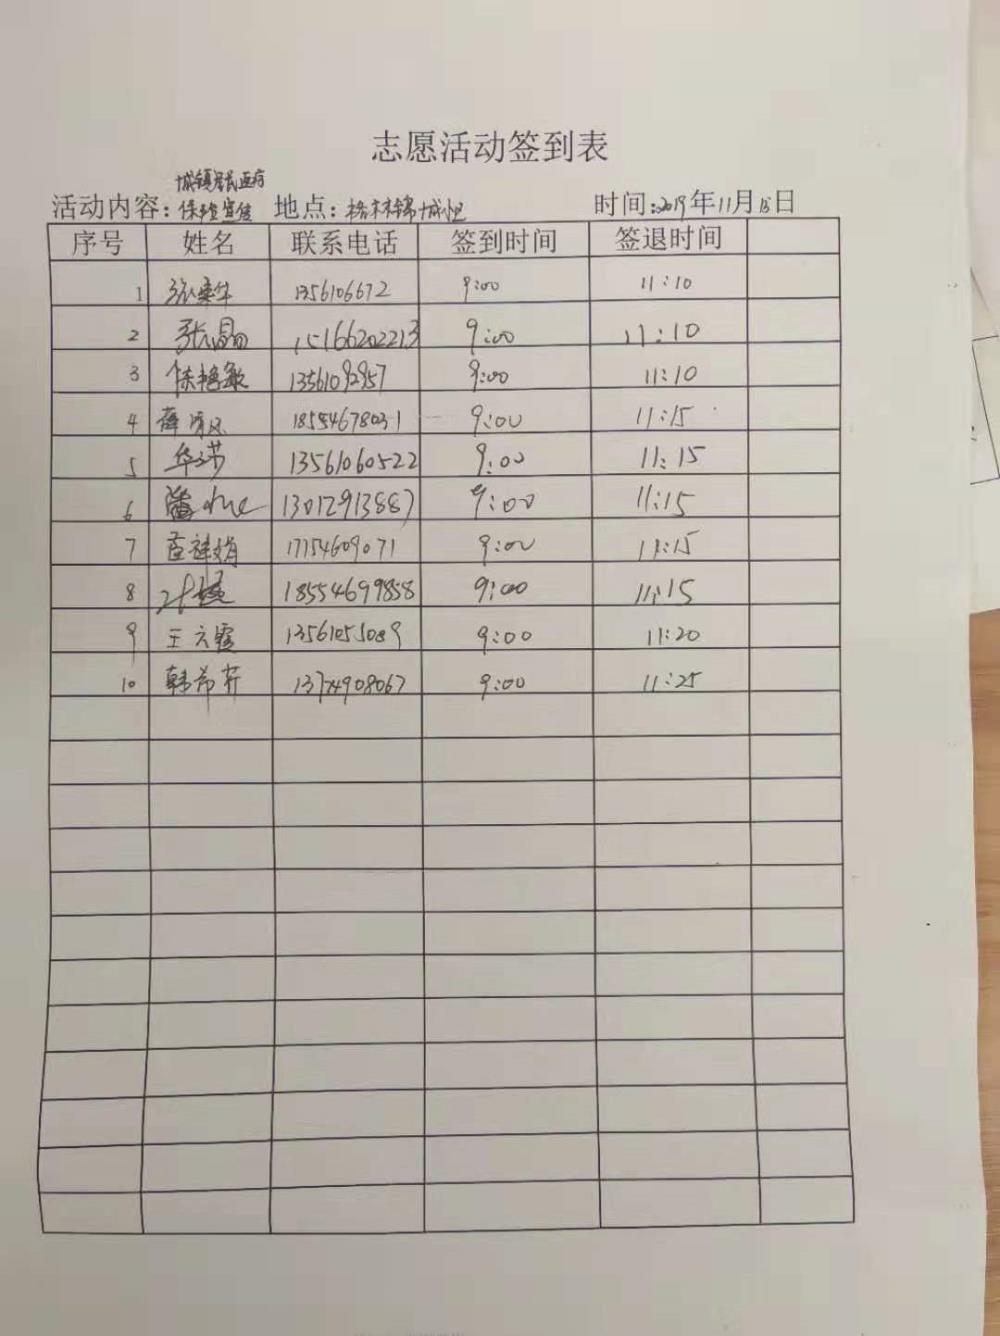 志愿活动签到表
城镇居民医疗
活动内容:保险宣传 地点:格林锦城 时间:2019年11月15日
序号 姓名 联系电话 签到时间 签退时间
1 1356106672 9:00 11:10
2 张晶 15166202213 9:00 11:10
3 徐艳敏 13561092957 9:00 11:10
4 薛 18554678031 9:00 11:15
5 华 13561060522 9:00 11:15
6 潘 13012913887 9:00 11:15
7 17154609071 9:00 11:15
8 18554699858 9:00 11:15
9 王六霞 13561055089 9:00 11:20
10 韩希芹 13774908067 9:00 11:25